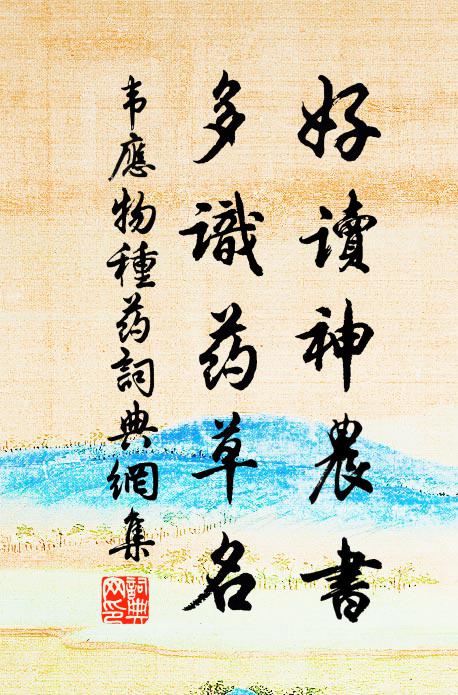 好讀神農書
多識药草名
韦應物種药詞典網集
詞典網印